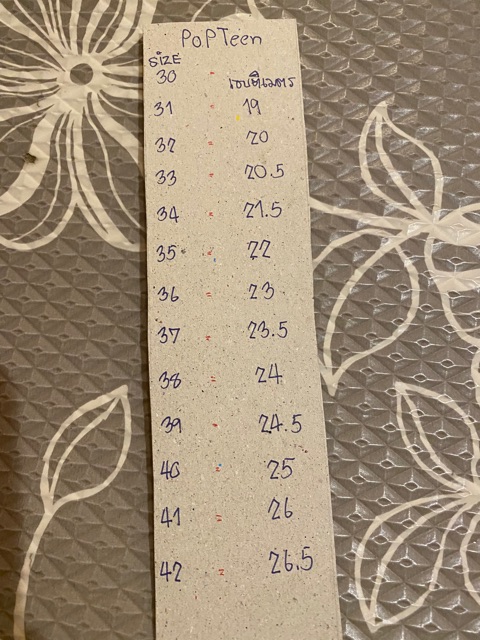 POPTeen
SIZE
30 = เซนติเมตร
31 = 19
32 = 20
33 = 20.5
34 = 21.5
35 = 22
36 = 23
37 = 23.5
38 = 24
39 = 24.5
40 = 25
41 = 26
42 = 26.5